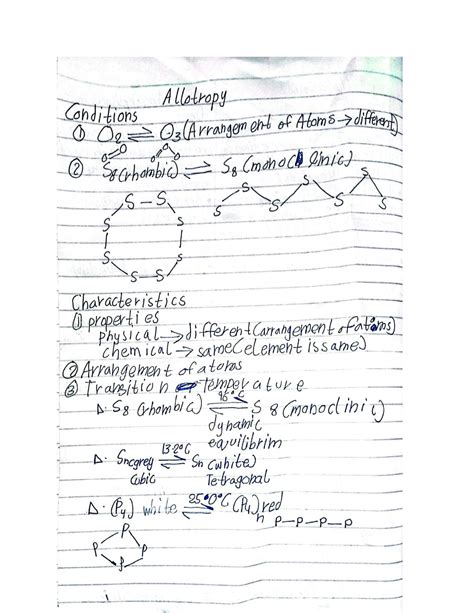 Allotropy
Conditions
① O₂ ⇌ O₃ (Arrangement of Atoms → different)
O=O O O O
② S₈(rhombic) ⇌ S₈ (monoclinic)
S - S S S S
S S S S S
S S
S S
S - S
Characteristics
① properties
physical → different (arrangement of atoms)
chemical → same (element is same)
② Arrangement of atoms
③ Transition Temperature
Δ. S₈ (rhombic) ⇌ 95°C S 8 (monoclinic)
dynamic
equilibrim
Δ. Sn(grey) ⇌ 13.2°C Sn (white)
Cubic Tetragonal
Δ. (P₄) white ⇌ 250°C (P₄)n red
P-P-P-P
P
P P
P